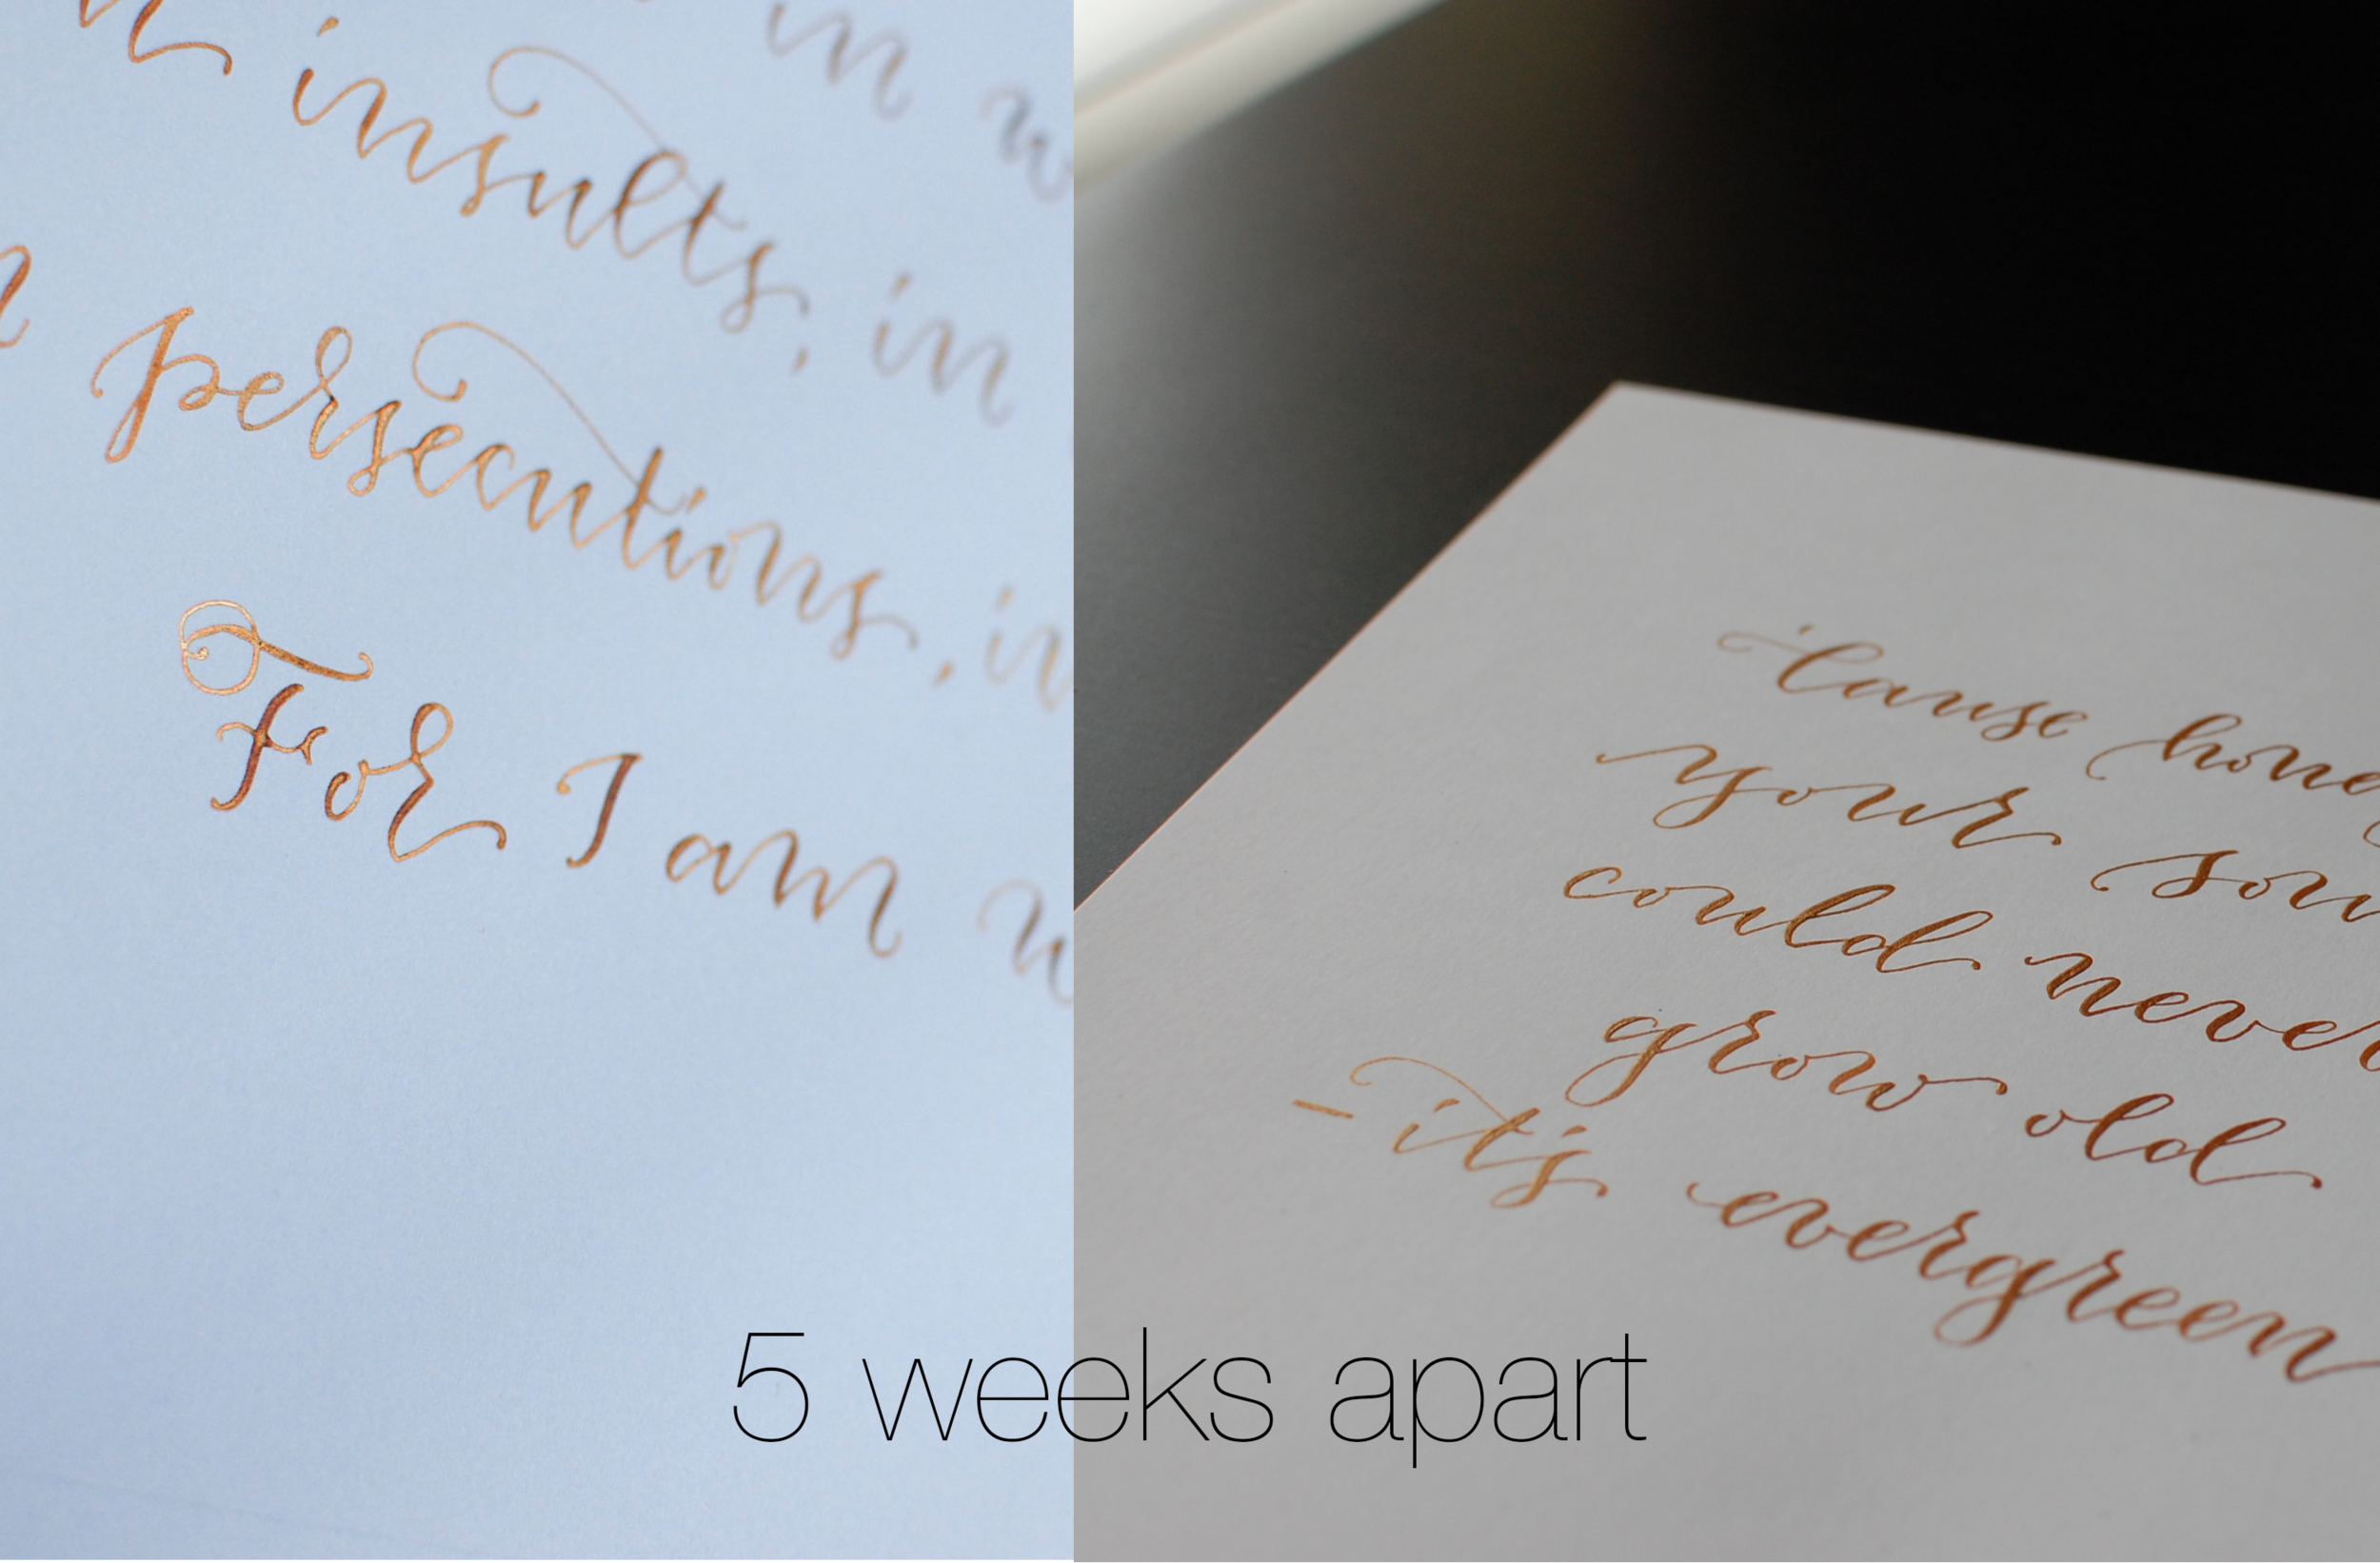 in w
insults, in
persecutions, in
For I am
'Cause
your
could never
grow old
– it's evergreen
5 weeks apart